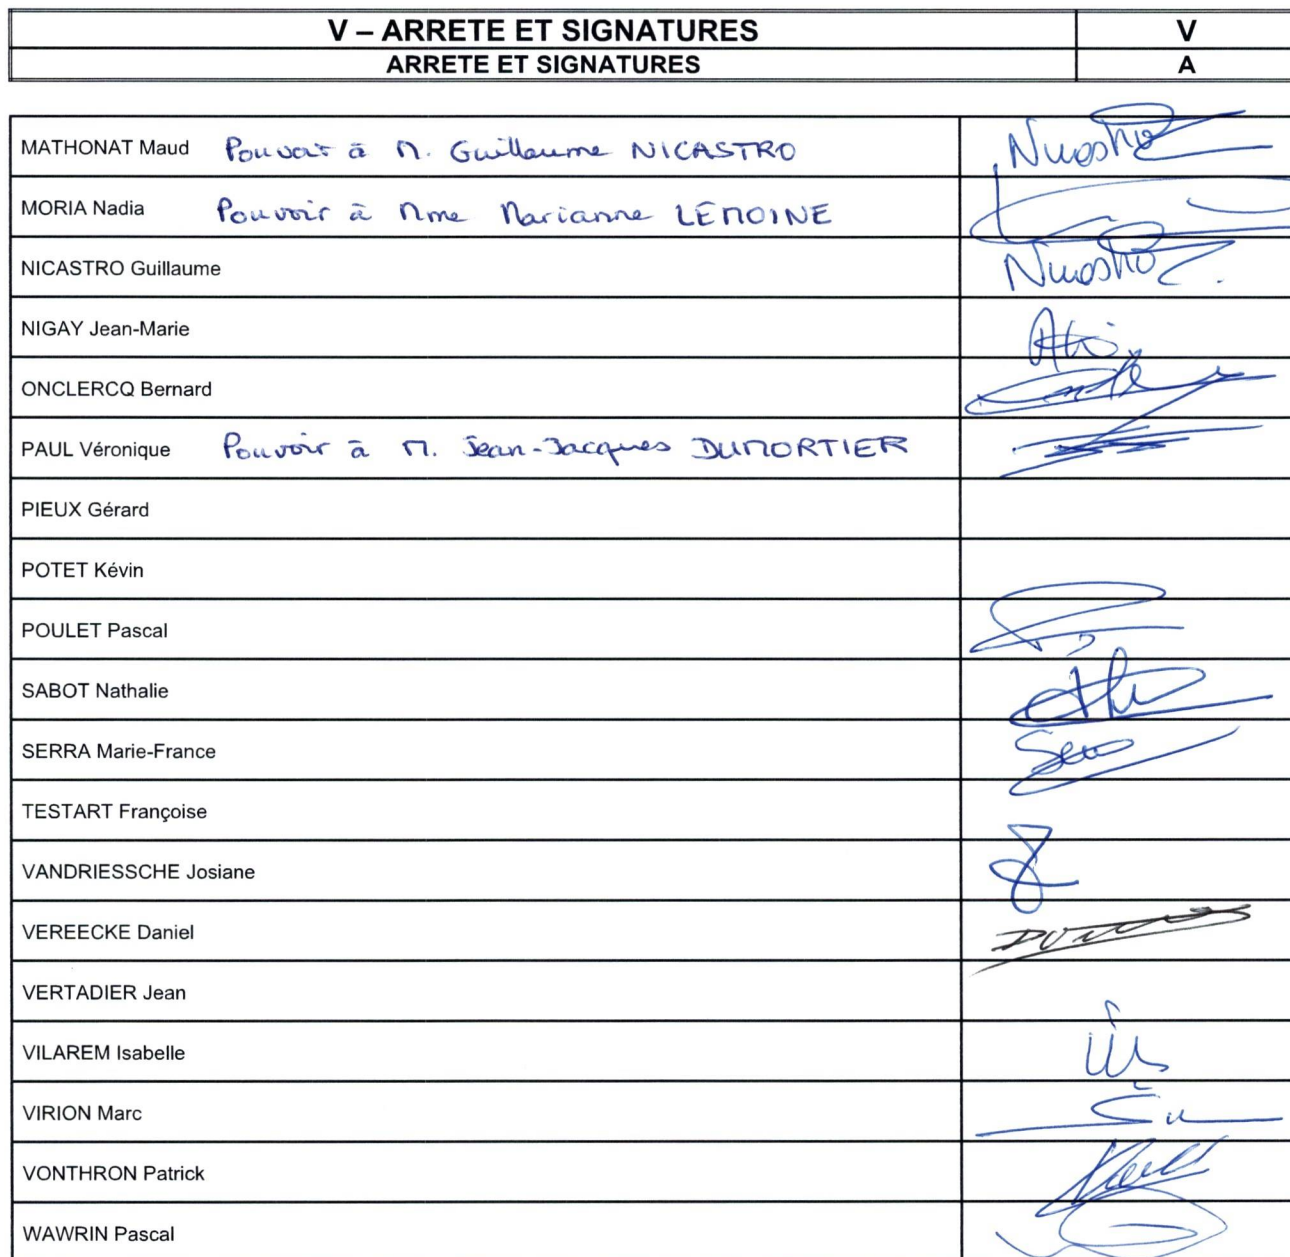 V – ARRETE ET SIGNATURES V
ARRETE ET SIGNATURES A
MATHONAT Maud Pouvoir à M. Guillaume NICASTRO Nicastro
MORIA Nadia Pouvoir à Mme Marianne LEMOINE
NICASTRO Guillaume Nicastro
NIGAY Jean-Marie
ONCLERCQ Bernard
PAUL Véronique Pouvoir à M. Jean-Jacques DUMORTIER
PIEUX Gérard
POTET Kévin
POULET Pascal
SABOT Nathalie
SERRA Marie-France
TESTART Françoise
VANDRIESSCHE Josiane
VEREECKE Daniel
VERTADIER Jean
VILAREM Isabelle
VIRION Marc
VONTHRON Patrick
WAWRIN Pascal